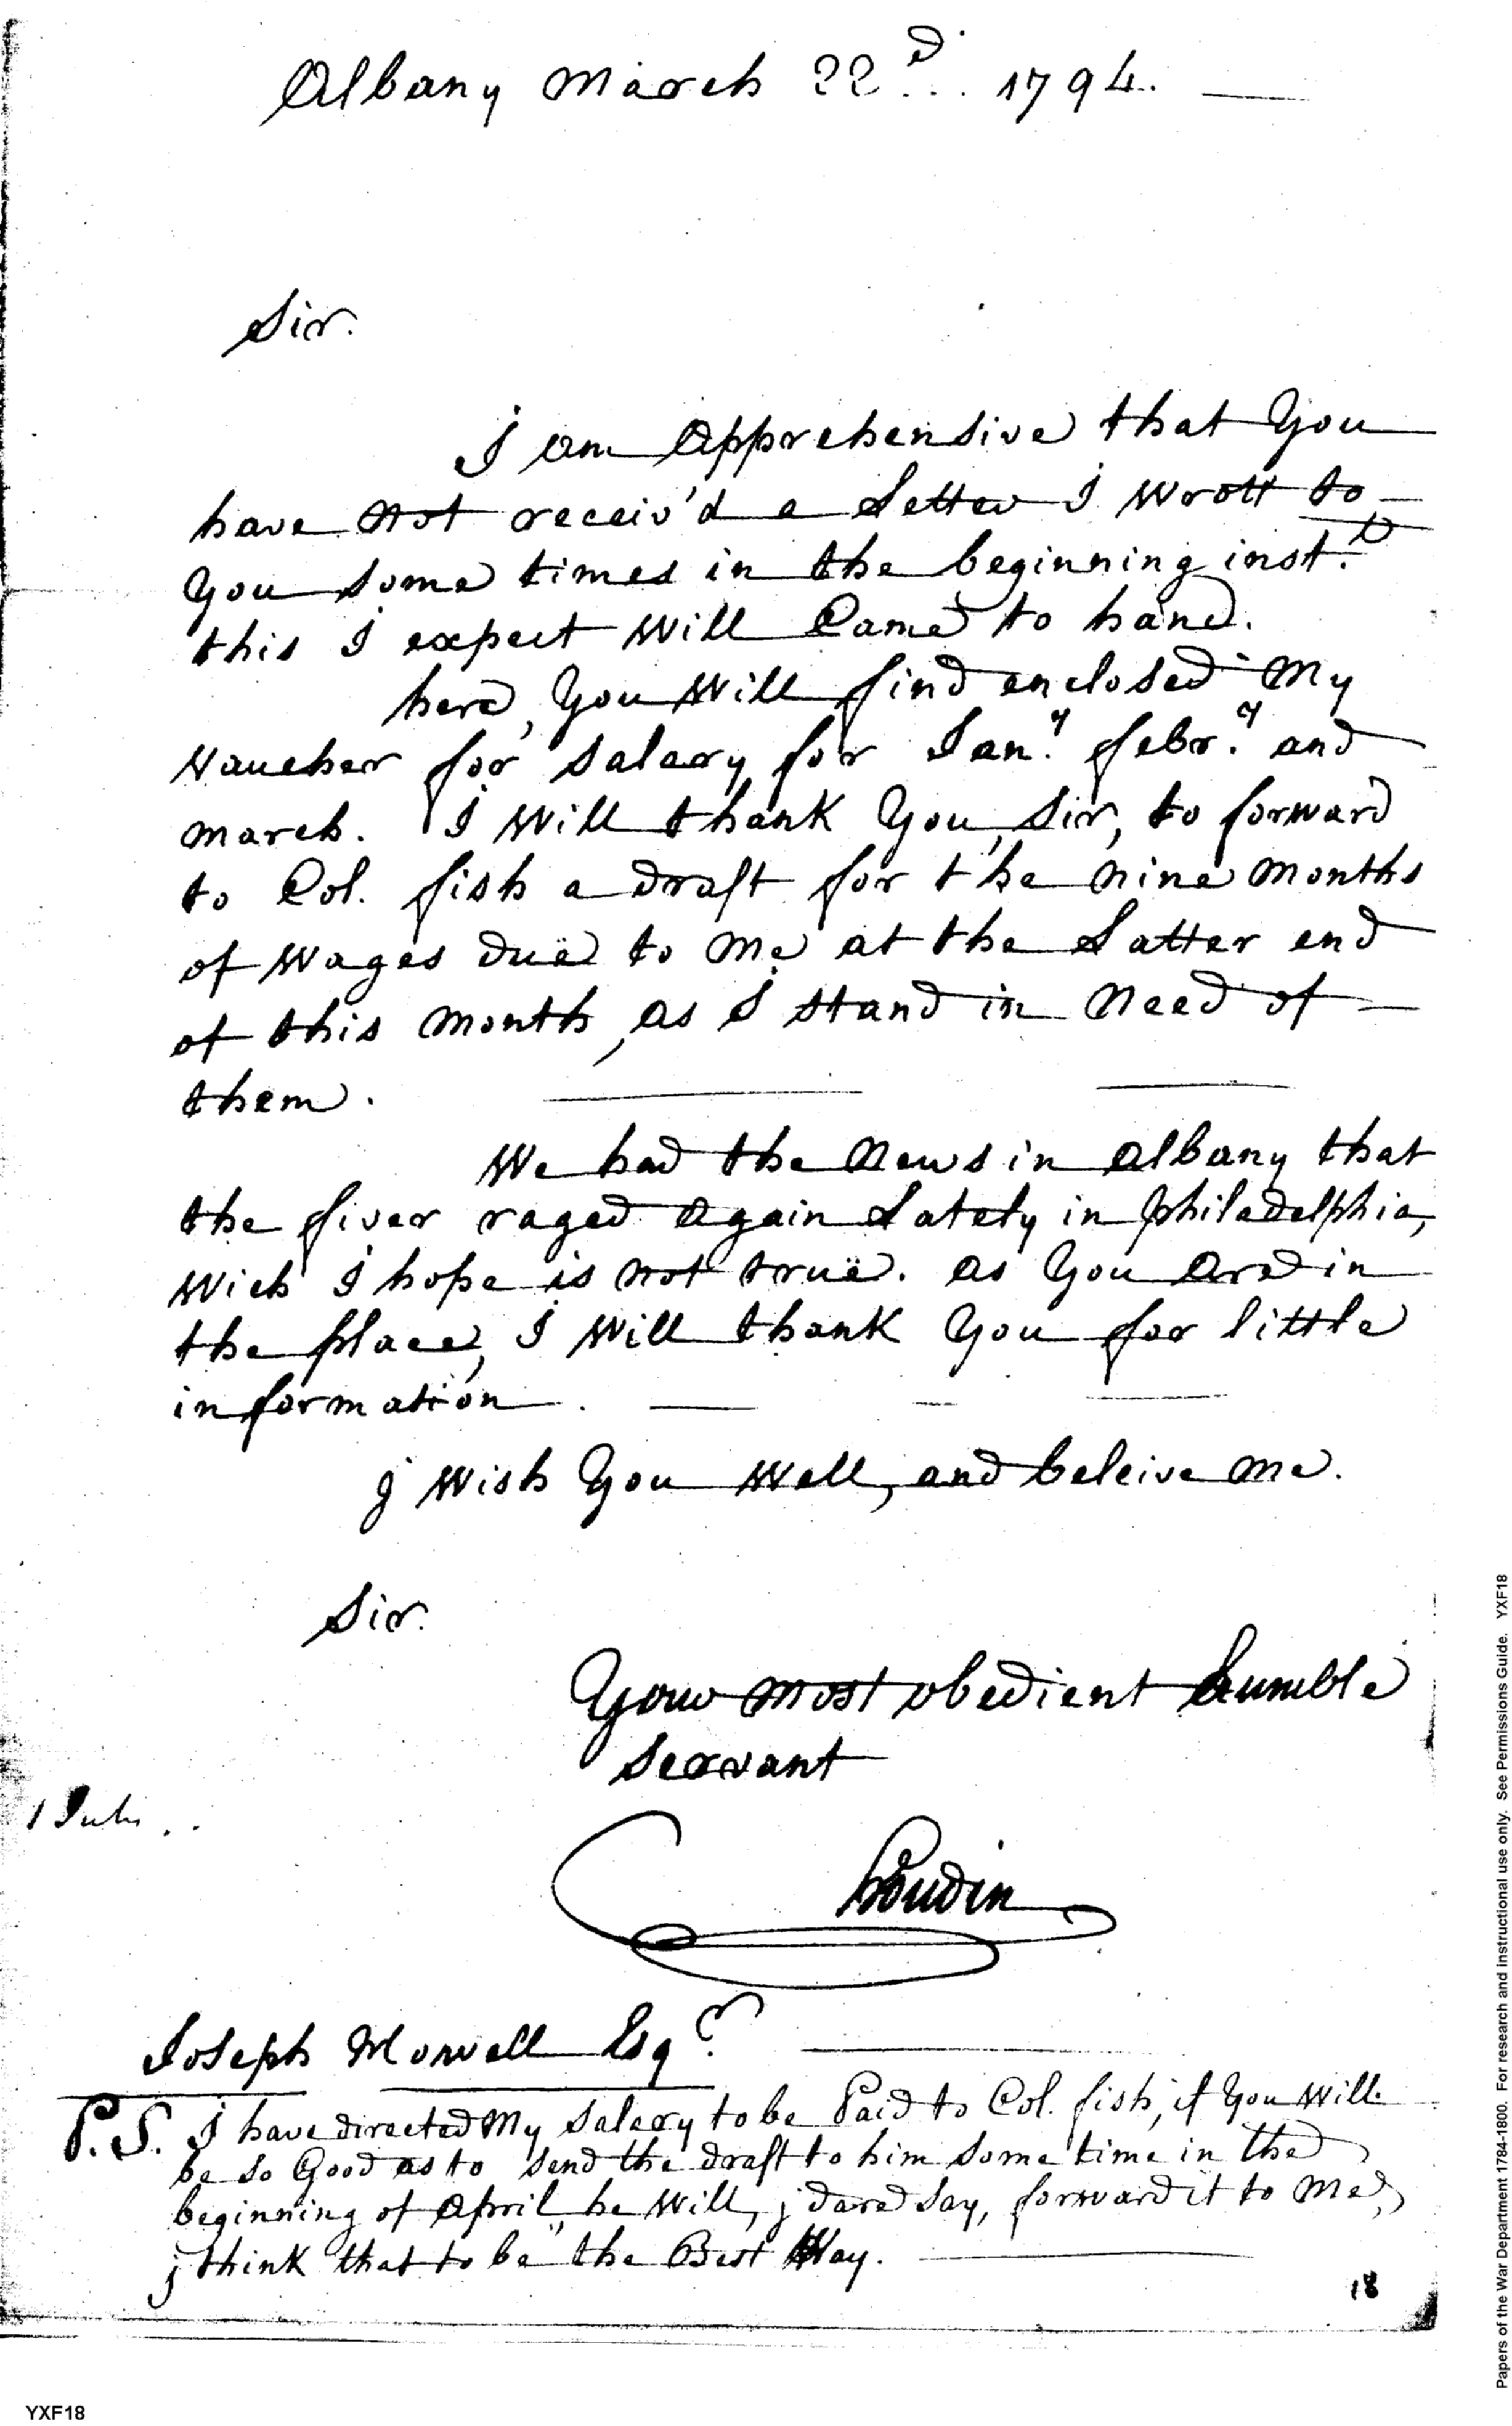 Albany March 22d. 1794.
Sir.
I am Apprehensive that You
have not receiv'd a Letter I wrott to
You some times in the beginning inst.t
this I expect will Came to hand.
here, You will find enclosed My
Vaucher for salary for Jan.y febr.y and
march. I will thank You, Sir, to forward
to Col. fish a draft for the nine months
of wages due to me at the Latter end
of this month, as I stand in need of
them.
We had the news in Albany that
the fiver raged again Lately in philadelphia,
wich I hope is not true. as You are in
the place, I will thank You for little
information.
j wish You well, and beleive me.
Sir.
Your most obedient humble
servant
1 July
Boudin
Joseph Howell Esqr.
P.S. I have directed My salary to be Paid to Col. fish, if You will
be so Good as to send the draft to him some time in the
beginning of April, he will, j dare say, forward it to me,
j think that to be the Best Way.
18
YXF18
Papers of the War Department 1784-1800. For research and instructional use only. See Permissions Guide. YXF18